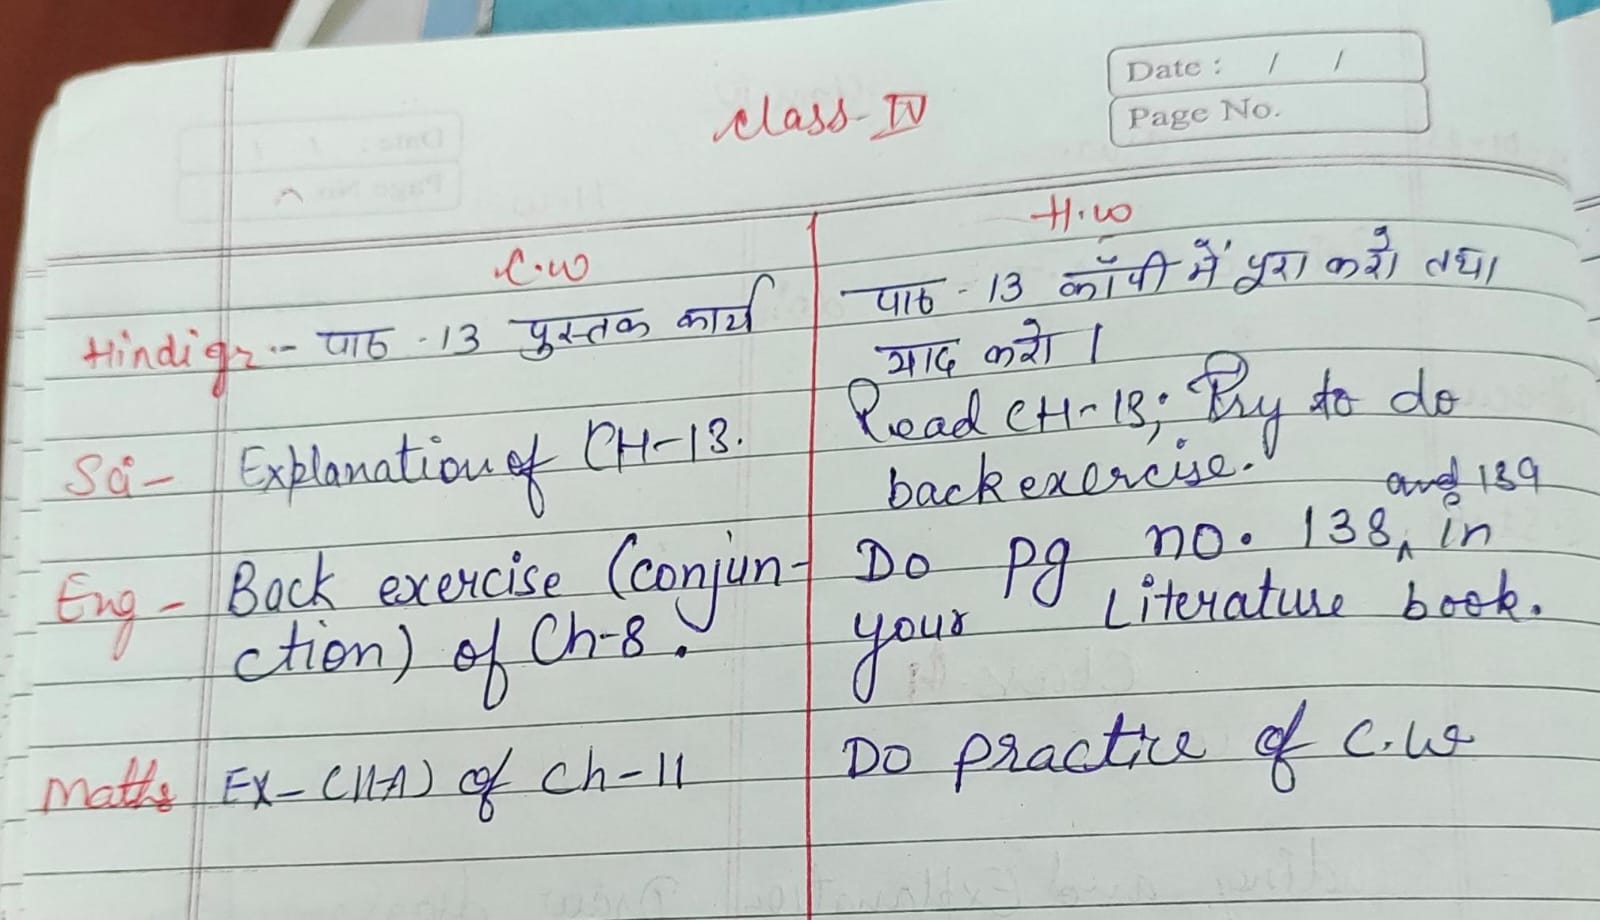 Date : / /
Page No.
Class-IV
C.W
H.W
Hindi gr :- पाठ - 13 पुस्तक कार्य
पाठ - 13 कॉपी में पूरा करो तथा
याद करो ।
Sci- Explanation of CH-13.
Read CH-13; Try to do
back exercise.
Eng - Back exercise (conjun-
ction) of Ch-8.
Do pg no. 138, and 139 in
your Literature book.
Maths Ex-(11A) of ch-11
Do practice of C.W